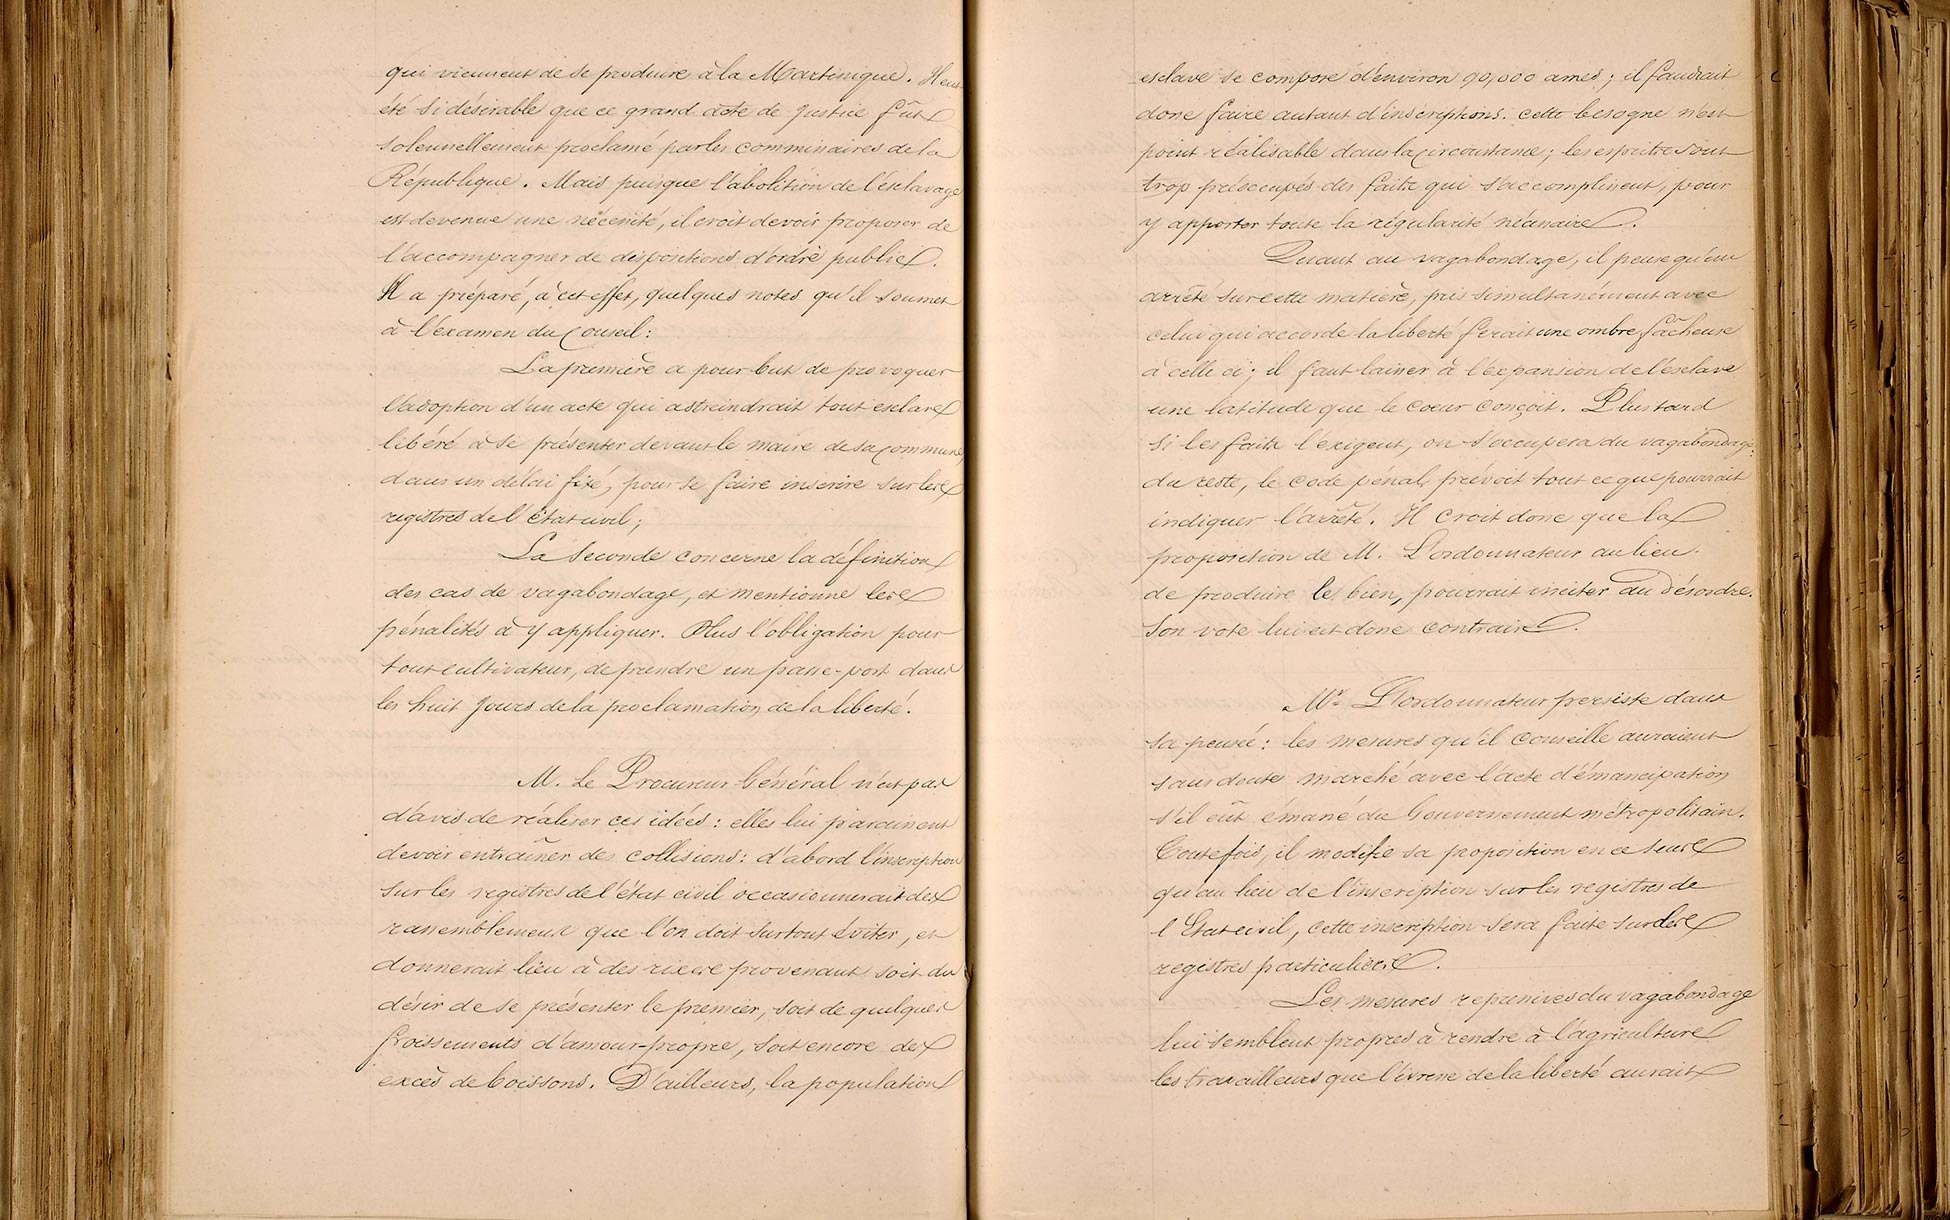 qui viennent de se produire à la Martinique. Il eut
été si désirable que ce grand acte de justice fût
solennellement proclamé par les commissaires de la
République. Mais puisque l'abolition de l'esclavage
est devenue une nécessité, il croit devoir proposer de
l'accompagner de dispositions d'ordre public.
Il a préparé, à cet effet, quelques notes qu'il soumet
à l'examen du Conseil :
La première a pour but de provoquer
l'adoption d'un acte qui astreindrait tout esclave
libéré à se présenter devant le maire de sa commune,
dans un délai fixé, pour se faire inscrire sur les
registres de l'État civil ;
La seconde concerne la définition
des cas de vagabondage, et mentionne les
pénalités à y appliquer. Plus l'obligation pour
tout cultivateur, de prendre un passe-port dans
les huit jours de la proclamation de la liberté.
M. Le Procureur Général n'est pas
d'avis de réaliser ces idées : elles lui paraissent
devoir entraîner des collisions : d'abord l'inscription
sur les registres de l'état civil occasionnerait des
rassemblements que l'on doit surtout éviter, et
donnerait lieu à des rixes provenant soit du
désir de se présenter le premier, soit de quelques
froissements d'amour-propre, soit encore des
excès de boissons. D'ailleurs, la population
esclave se compose d'environ 90,000 ames ; il faudrait
donc faire autant d'inscriptions. cette besogne n'est
point réalisable dans la circonstance ; les esprits sont
trop préoccupés des faits qui s'accomplissent, pour
y apporter toute la régularité nécessaire.
Quant au vagabondage, il pense qu'un
arrêté sur cette matière, pris simultanément avec
celui qui accorde la liberté ferait une ombre fâcheuse
à celle ci ; il faut laisser à l'expansion de l'esclave
une latitude que le coeur conçoit. Plus tard
si les faits l'exigent, on s'occupera du vagabondage.
du reste, le code pénal, prévoit tout ce que pourrait
indiquer l'arrêté. Il croit donc que la
proposition de M. L'ordonnateur au lieu
de produire le bien, pourrait inciter au désordre.
Son vote lui est donc contraire.
Mr. L'ordonnateur persiste dans
sa pensée : les mesures qu'il conseille auraient
sans doute marché avec l'acte d'émancipation
s'il eût émané du Gouvernement métropolitain.
Toutefois, il modifie sa proposition en ce sens
qu'au lieu de l'inscription sur les registres de
l'État civil, cette inscription sera faite sur des
registres particuliers.
Les mesures repressives du vagabondage
lui semblent propres à rendre à l'agriculture
les travailleurs que l'ivresse de la liberté aurait